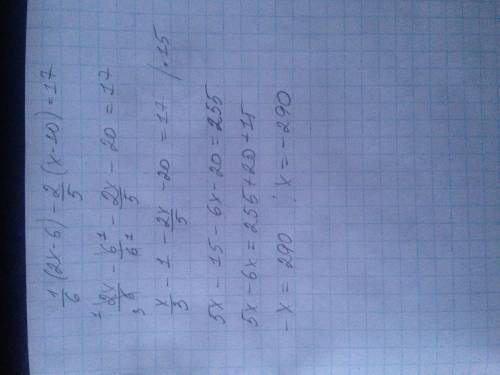 1/6 (2x-6) - 2/5 (x-10) = 17
2x/6 - 6/6 - 2x/5 - 20 = 17
x/3 - 1 - 2x/5 - 20 = 17 / ·15
5x - 15 - 6x - 20 = 255
5x - 6x = 255 + 20 + 15
-x = 290 ; x = -290